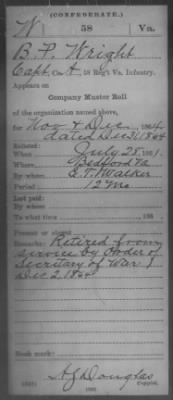 (CONFEDERATE.)
W 58 Va.
B. P. Wright
Capt, Co. A, 58 Reg't Va. Infantry.
Appears on
Company Muster Roll
of the organization named above,
for Nov & Dec, 1864
dated Dec 31, 1864
Enlisted:
When July 28, 1861.
Where Bedford Va
By whom E. T. Walker
Period 12 Mo
Last paid:
By whom
To what time , 186 .
Present or absent
Remarks: Retired from
service by Order of
Secretary of War
Dec 2, 1864
Book mark:
A J Douglas
Copyist.